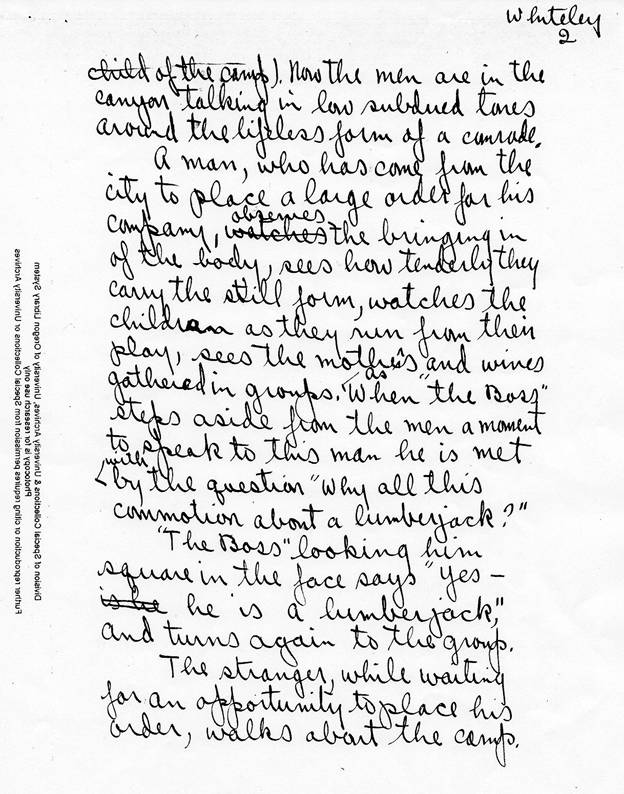 Whiteley
2
child of the camp). Now the men are in the
canyon talking in low subdued tones
around the lifeless form of a comrade.
A man, who has come from the
city to place a large order for his
observes
company, watches the bringing in
of the body, sees how tenderly they
carry the still form, watches the
children as they run from their
play, sees the mothers and wives
as
gathered in groups. When "the Boss"
steps aside from the men a moment
to speak to this man he is met
by the question "Why all this
commotion about a lumberjack?"
"The Boss" looking him
square in the face says "Yes –
is he he is a lumberjack,"
and turns again to the group.
The stranger, while waiting
for an opportunity to place his
order, walks about the camp.
Division of Special Collections & University Archives, University of Oregon Library System
Photocopy is for research use only.
Further reproduction or citing requires permission from Special Collections or University Archives